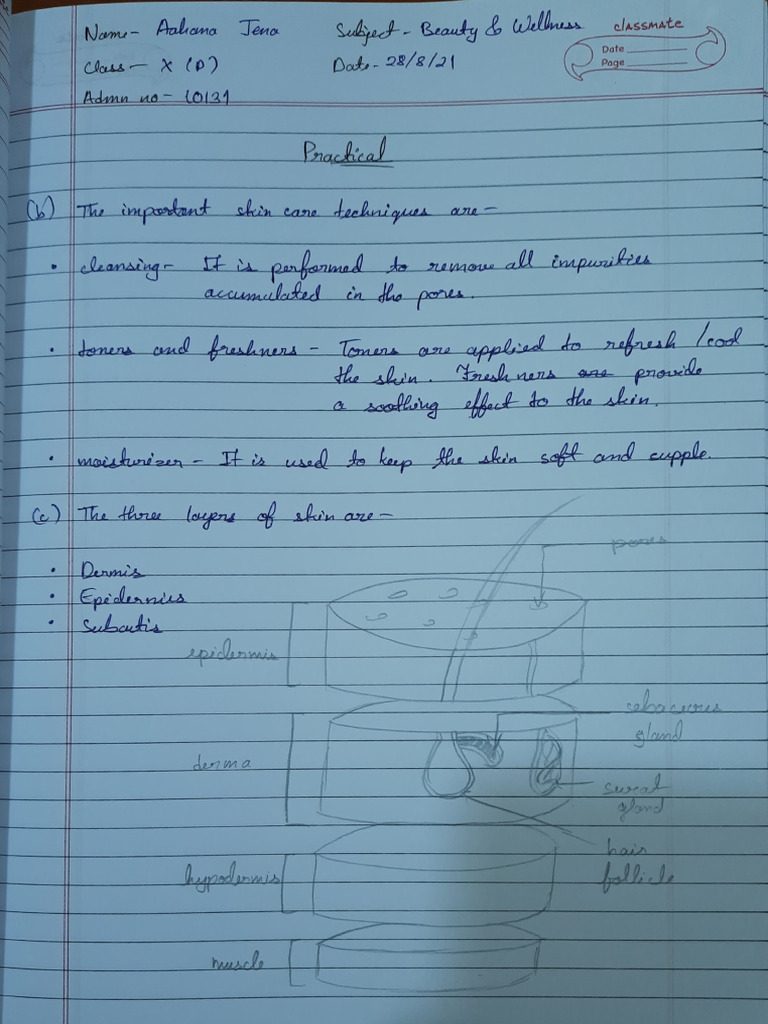 Name- Aahana Jena
Subject- Beauty & Wellness
classmate
Date
Page
Class- X (D)
Date- 28/8/21
Admn no- 10131
Practical
(b) The important skin care techniques are-
• cleansing- It is performed to remove all impurities
accumulated in the pores.
• toners and freshners - Toners are applied to refresh /cool
the skin. Freshners are provide
a soothing effect to the skin.
• moisturizer - It is used to keep the skin soft and cupple.
(c) The three layers of skin are-
• Dermis
• Epidermis
• Subcutis
pores
epidermis
sebaceous
gland
derma
sweat
gland
hair
follicle
hypodermis
muscle